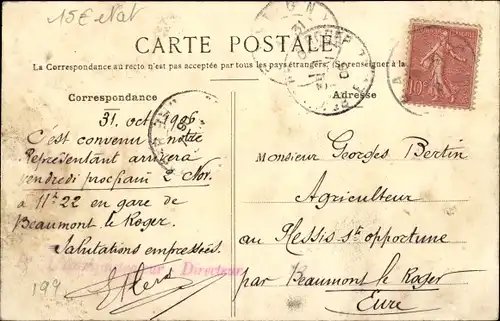 15€ etat
CARTE POSTALE
La Correspondance au recto n'est pas acceptée par tous les pays étrangers. (Se renseigner à la
Correspondance
Adresse
31. oct. 1906
C'est convenu notre
Représentant arrivera
vendredi prochain Nov.
à 11h22 en gare de
Beaumont le Roger.
Salutations empressées.
Directeur
199
Monsieur Georges Bertin
Agriculteur
au Plessis Ste opportune
par Beaumont le Roger
Eure
10c